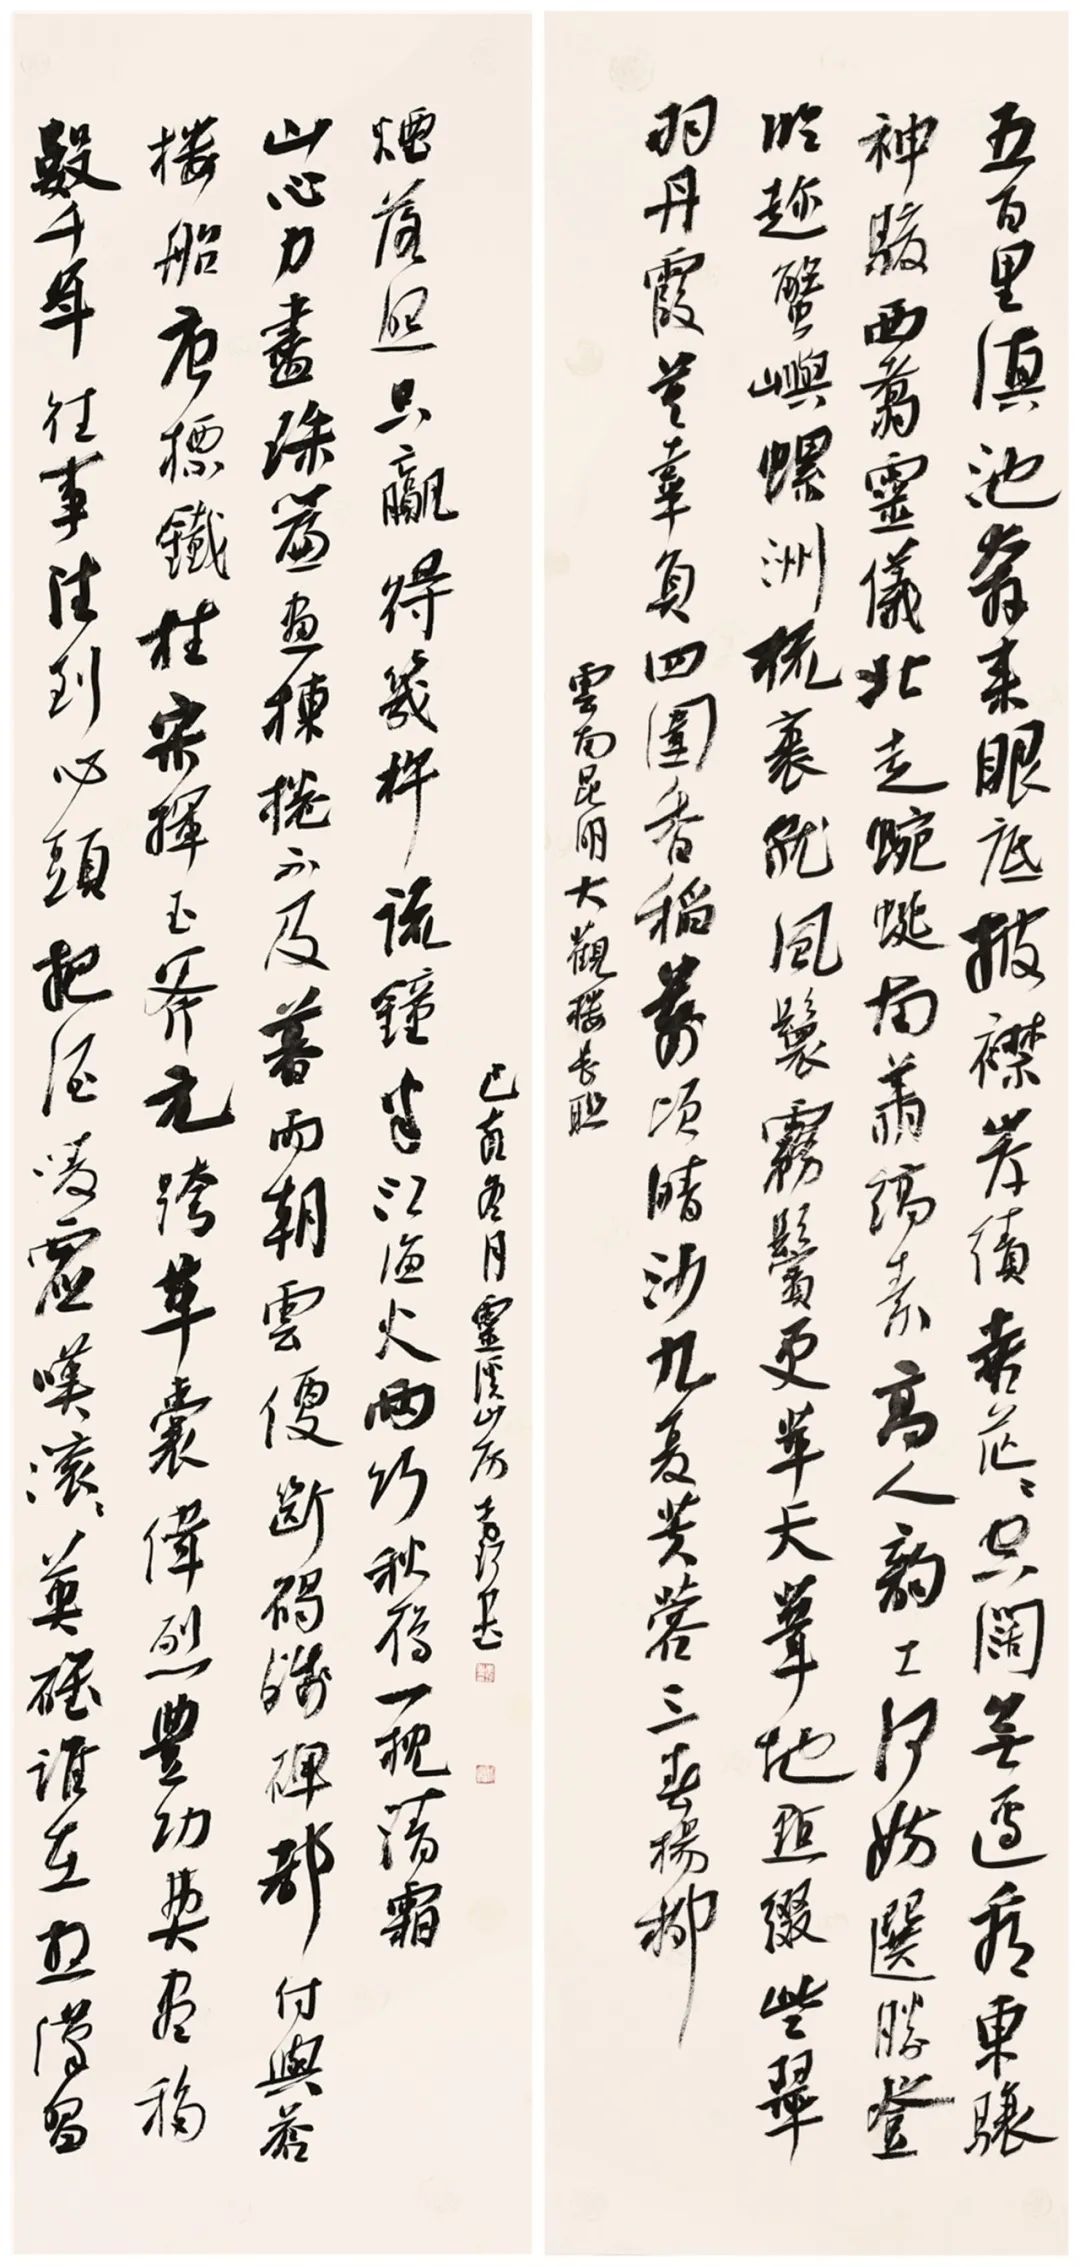 五百里滇池奔來眼底披襟岸幘喜茫〻空闊無邊看東驤
神駿西翥靈儀北走蜿蜒南翔縞素高人韻士何妨選勝登
臨趁蟹嶼螺洲梳裹就風鬟霧鬢更苹天葦地點綴些翠
羽丹霞莫辜負四圍香稻萬頃晴沙九夏芙蓉三春楊柳
雲南昆明大觀楼長联
數千年往事注到心頭把酒凌虛嘆滾〻英雄誰在想漢習
楼船唐標鐵柱宋揮玉斧元跨革囊偉烈豐功費盡移
山心力盡珠簾畫棟捲不及暮雨朝雲便斷碣殘碑都付與蒼
煙落照只贏得幾杵疏鐘半江漁火兩行秋雁一枕清霜
己亥冬月靈溪山房書